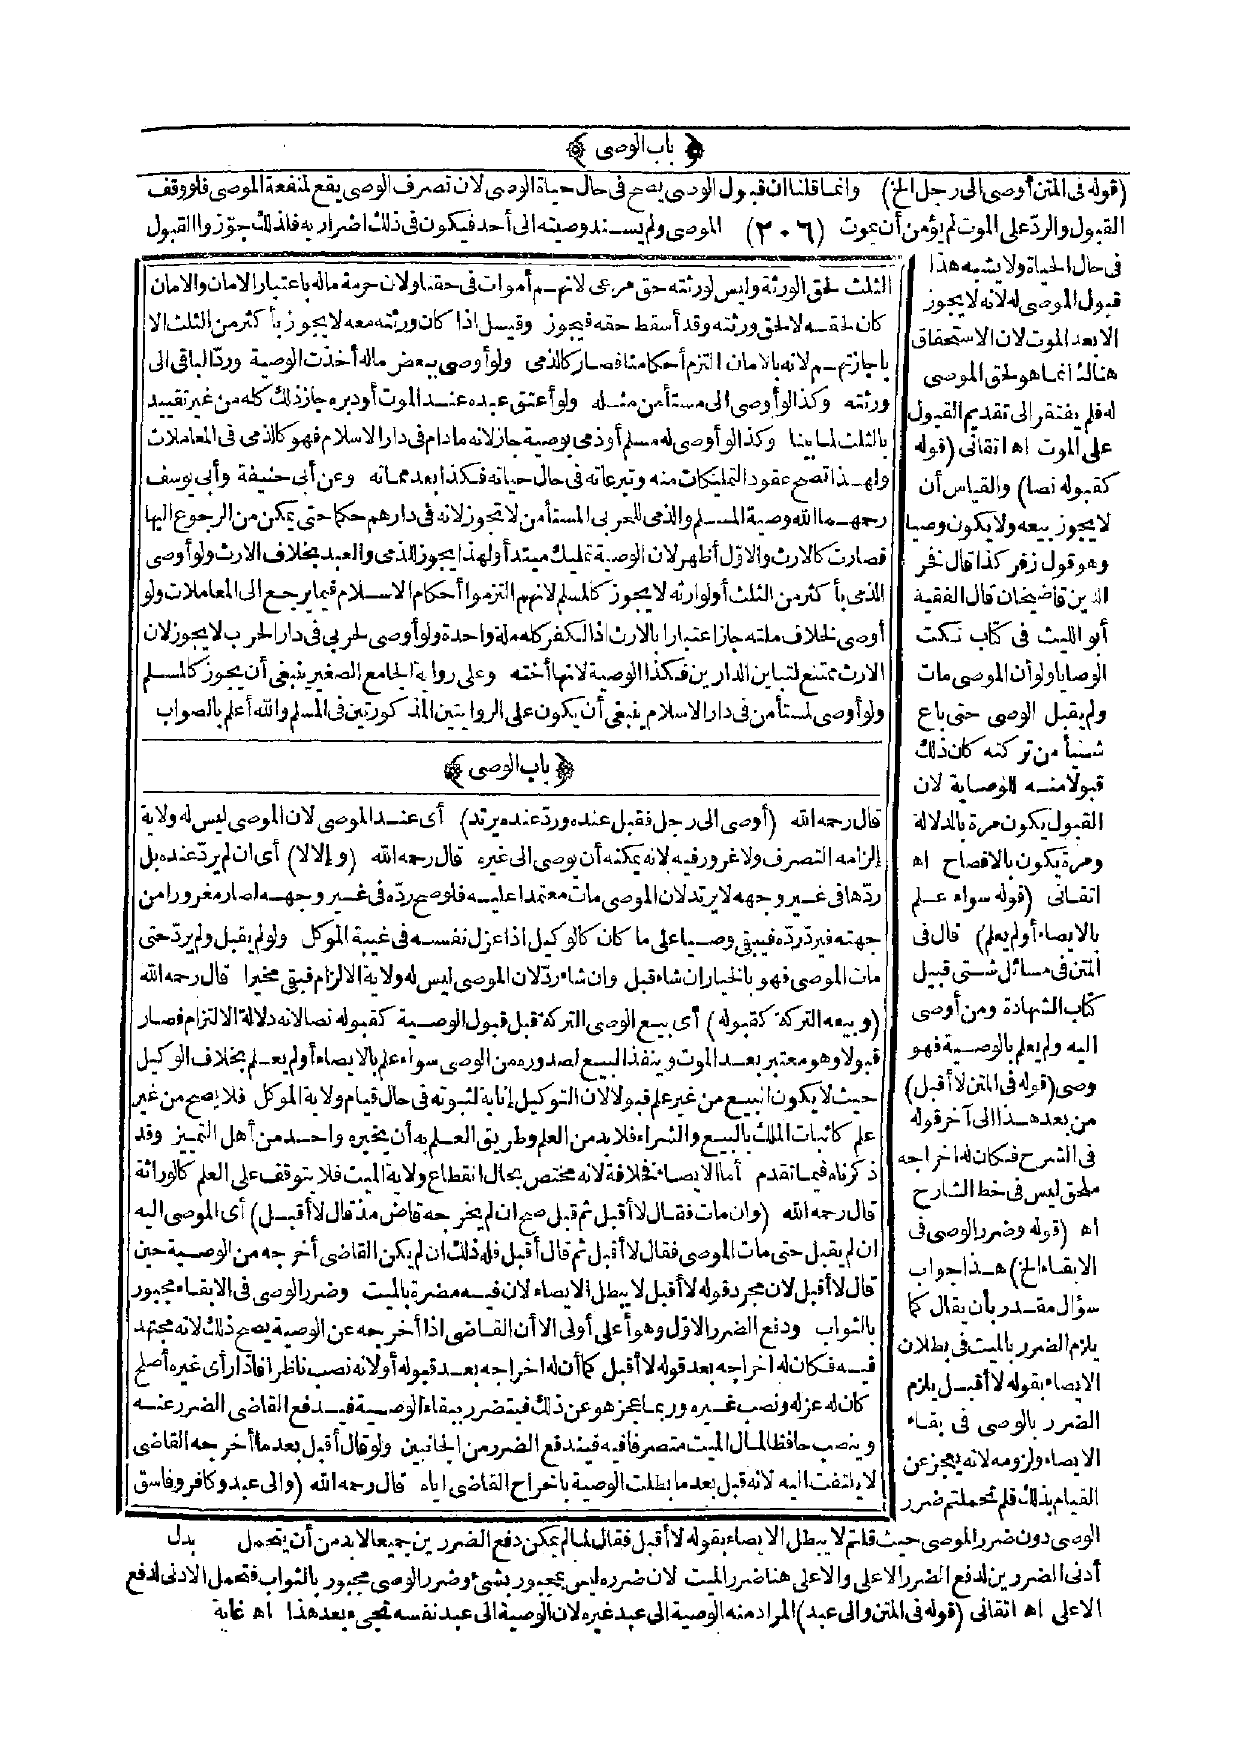 ﴿ باب الوصى ﴾
(قوله فى المتن أوصى الى رجل الخ) وانما قلنا ان قبول الوصى يصح فى حال حياة الوصى لان تصرف الوصى يقع لمنفعة الموصى فلو وقف
القبول والرد على الموت لم يؤمن أن يموت (٢٠٦) الموصى ولم يسند وصيته الى أحد فيكون فى ذلك اضرار به فلذلك جوزوا القبول
فى حال الحياة ولا يشبه هذا
قبول الموصى له لانه لا يجوز
الا بعد الموت لان الاستحقاق
هنالك انما هو لحق الموصى
له فلم يفتقر الى تقديم القبول
على الموت اه اتقانى (قوله
كقبوله نصا) والقياس أن
لا يجوز بيعه ولا يكون وصيا
وهو قول زفر كذا قال فخر
الدين قاضيخان قال الفقيه
أبو الليث فى كتاب نكت
الوصايا ولو أن الموصى مات
ولم يقبل الوصى حتى باع
شيأ من تركته كان ذلك
قبولا منه للوصاية لان
القبول يكون مرة بالدلالة
ومرة يكون بالافصاح اه
اتقانى (قوله سواء علم
بالايصاء أولم يعلم) قال فى
المتن فى مسائل شتى قبيل
كتاب الشهادة ومن أوصى
اليه ولم يعلم بالوصية فهو
وصى (قوله فى المتن لا أقبل)
من بعد هذا الى آخر قوله
فى الشرح فكان له اخراجه
ملحق ليس فى خط الشارح
اه (قوله وضرر الوصى فى
الابقاء الخ) هذا جواب
سؤال مقدر بأن يقال كما
يلزم الضرر بالميت فى بطلان
الايصاء بقوله لا أقبل يلزم
الضرر بالوصى فى بقاء
الايصاء ولزومه لانه يعجز عن
القيام بذلك فلم تحملتم ضرر
الثلث لحق الورثة وليس لورثته حق مرعى لانهم أموات فى حقنا ولان حرمة ماله باعتبار الامان والامان
كان لحقه لا لحق ورثته وقد أسقط حقه فيجوز وقيل اذا كان ورثته معه لا يجوز بأكثر من الثلث الا
باجازتهم لانه بالامان التزم أحكامنا فصار كالذمى ولو أوصى ببعض ماله أخذت الوصية ورد الباقى الى
ورثته وكذا لو أوصى الى مستأمن مثله ولو أعتق عبده عند الموت أو دبره جاز ذلك كله من غير تقييد
بالثلث لما بينا وكذا لو أوصى له مسلم أو ذمى بوصية جاز لانه ما دام فى دار الاسلام فهو كالذمى فى المعاملات
ولهذا تصح عقود التمليكات منه وتبرعاته فى حال حياته فكذا بعد مماته وعن أبى حنيفة وأبى يوسف
رحمهما الله وصية المسلم والذمى للحربى المستأمن لا تجوز لانه فى دارهم حكما حتى يمكن من الرجوع اليها
فصارت كالارث والاول أظهر لان الوصية تمليك مبتدأ ولهذا يجوز للذمى والعبد بخلاف الارث ولو أوصى
الذمى بأكثر من الثلث أو لوارثه لا يجوز كالمسلم لانهم التزموا أحكام الاسلام فيما يرجع الى المعاملات ولو
أوصى لخلاف ملته جاز اعتبارا بالارث اذ الكفر كله ملة واحدة ولو أوصى لحربى فى دار الحرب لا يجوز لان
الارث ممتنع لتباين الدارين فكذا الوصية لانها أخته وعلى رواية الجامع الصغير ينبغى أن يجوز كالمسلم
ولو أوصى لمستأمن فى دار الاسلام ينبغى أن يكون على الروايتين المذكورتين فى المسلم والله أعلم بالصواب
﴿ باب الوصى ﴾
قال رحمه الله (أوصى الى رجل فقبل عنده ورد عنده يرتد) أى عند الموصى لان الموصى ليس له ولاية
إلزامه التصرف ولا غرور فيه لانه يمكنه أن يوصى الى غيره قال رحمه الله (وإلا لا) أى ان لم يرد عنده بل
ردها فى غير وجهه لا يرتد لان الموصى مات معتمدا عليه فلو صح رده فى غير وجهه لصار مغرورا من
جهته فيرد رده فيبقى وصيا على ما كان كالوكيل اذا عزل نفسه فى غيبة الموكل ولو لم يقبل ولم يرد حتى
مات الموصى فهو بالخيار ان شاء قبل وان شاء رد لان الموصى ليس له ولاية الالزام فبقى مخيرا قال رحمه الله
(وبيعه التركة كقبوله) أى بيع الوصى التركة قبل قبول الوصية كقبوله نصا لانه دلالة الالتزام فصار
قبولا وهو معتبر بعد الموت وينفذ البيع لصدوره من الوصى سواء علم بالايصاء أو لم يعلم بخلاف الوكيل
حيث لا يكون البيع من غير علم قبولا لان التوكيل إنابة لثبوته فى حال قيام ولاية الموكل فلا يصح من غير
علم كاثبات الملك بالبيع والشراء فلا بد من العلم وطريق العلم به أن يخبره واحد من أهل التمييز وقد
ذكرناه فيما تقدم أما الايصاء فخلافة لانه مختص بحال انقطاع ولاية الميت فلا يتوقف على العلم كالوراثة
قال رحمه الله (وان مات فقال لا أقبل ثم قبل صح ان لم يخرجه قاض مذ قال لا أقبل) أى الموصى اليه
ان لم يقبل حتى مات الموصى فقال لا أقبل ثم قال أقبل فله ذلك ان لم يكن القاضى أخرجه من الوصية حين
قال لا أقبل لان مجرد قوله لا أقبل لا يبطل الايصاء لان فيه مضرة بالميت وضرر الوصى فى الابقاء مجبور
بالثواب ودفع الضرر الاول وهو أعلى أولى الا أن القاضى اذا أخرجه عن الوصية يصح ذلك لانه مجتهد
فيه فكان له اخراجه بعد قوله لا أقبل كما أن له اخراجه بعد قبوله أو لانه نصب ناظرا فاذا رأى غيره أصلح
كان له عزله ونصب غيره وربما يعجز هو عن ذلك فيتضرر ببقاء الوصية فيدفع القاضى الضرر عنه
وينصب حافظا لمال الميت متصرفا فيه فيندفع الضرر من الجانبين ولو قال أقبل بعد ما أخرجه القاضى
لا يلتفت اليه لانه قبل بعد ما بطلت الوصية باخراج القاضى اياه قال رحمه الله (والى عبد وكافر وفاسق
الوصى دون ضرر الموصى حيث قلتم لا يبطل الايصاء بقوله لا أقبل فقال لما لم يمكن دفع الضررين جميعا لا بد من أن يتحمل بدل
أدنى الضررين لدفع الضرر الاعلى والاعلى هنا ضرر الميت لان ضرره ليس بمجبور بشئ وضرر الوصى مجبور بالثواب فتحمل الادنى لدفع
الاعلى اه اتقانى (قوله فى المتن والى عبد) المراد منه الوصية الى عبد غيره لان الوصية الى عبد نفسه تجىء بعد هذا اه غاية